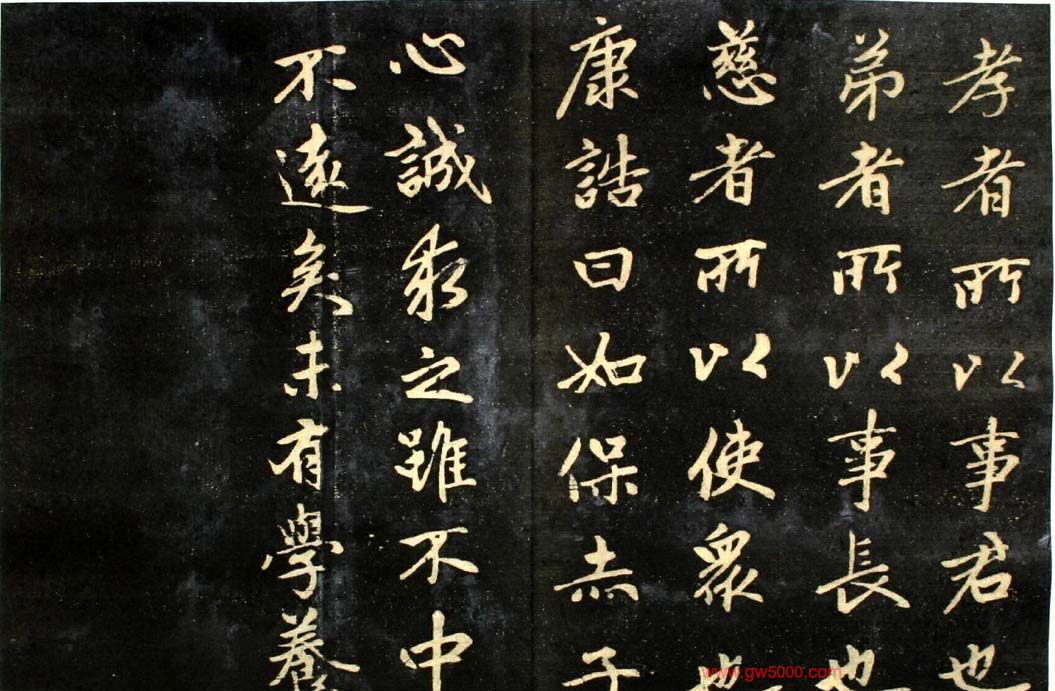 孝者所以事君也
弟者所以事長也
慈者所以使衆也
康誥曰如保赤子
心誠求之雖不中
不遠矣未有學養
www.gw5000.com